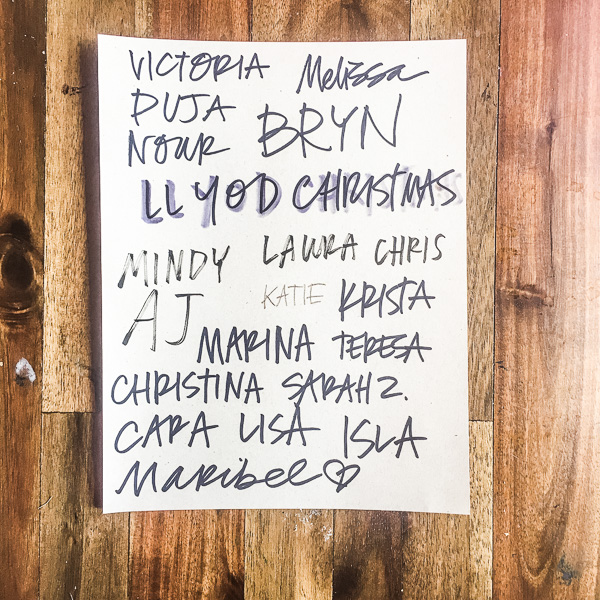 VICTORIA Melissa
PUJA BRYN
NOUR
LLYOD CHRISTMAS
MINDY LAURA CHRIS
AJ KATIE KRISTA
MARINA TERESA
CHRISTINA SARAH Z.
CARA LISA ISLA
Maribel